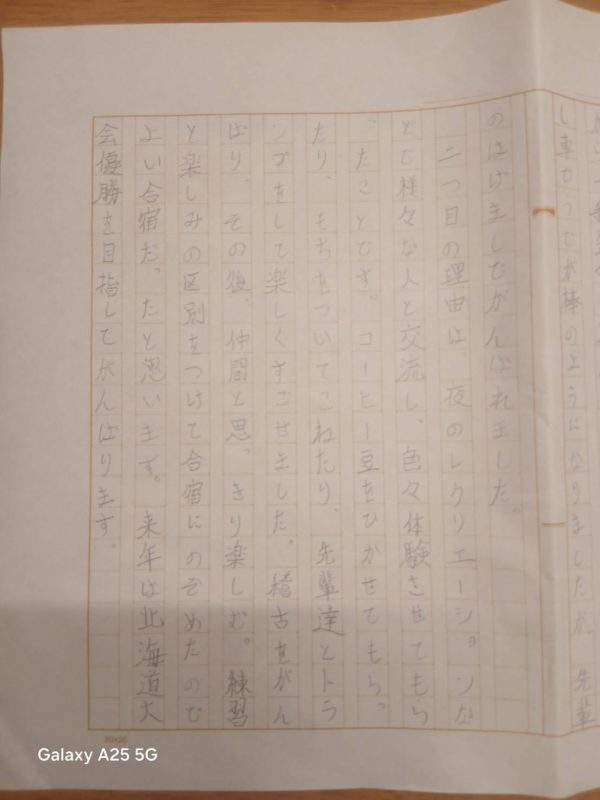 し車もつてが棒のようになりましたが、先輩
のはげましでがんばれました。
二つ目の理由は、夜のレクリエーションな
どで様々な人と交流し、色々体験させてもら
ったことです。コーヒー豆をひかせてもらっ
たり、もちをついてこねたり、先輩達とトラ
ンプをして楽しくすごせました。稽古をがん
ばり、その後、仲間と思っきり楽しむ。練習
と楽しみの区別をつけて合宿にのぞめたので
よい合宿だったと思います。来年は北海道大
会優勝を目指してがんばります。
20×20
Galaxy A25 5G